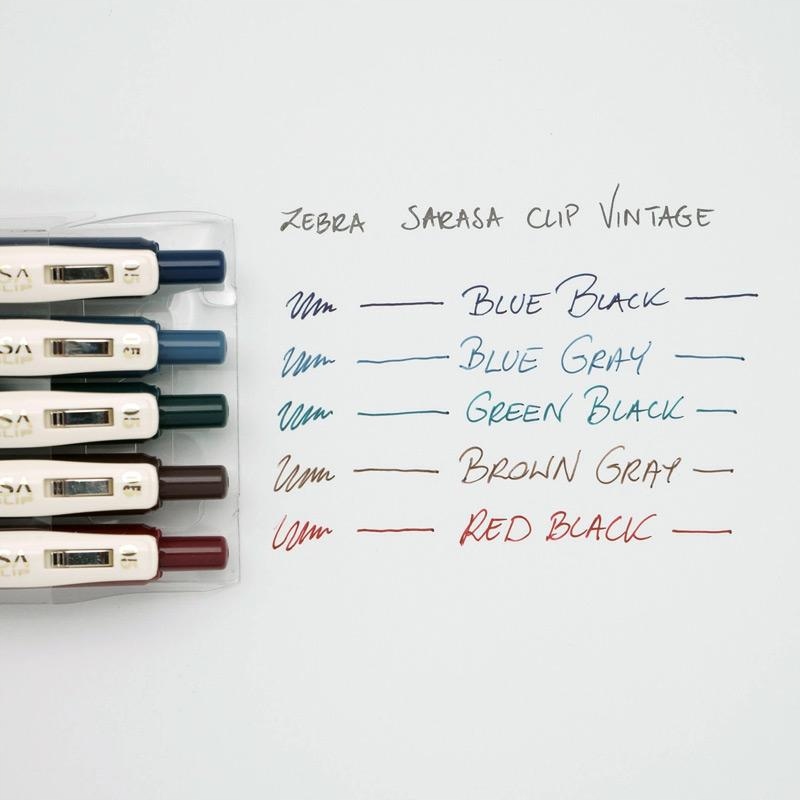 ZEBRA SARASA CLIP VINTAGE
BLUE BLACK
BLUE GRAY
GREEN BLACK
BROWN GRAY
RED BLACK
SA
CLIP
05
SA
CLIP
05
SA
CLIP
05
SA
CLIP
05
SA
CLIP
05